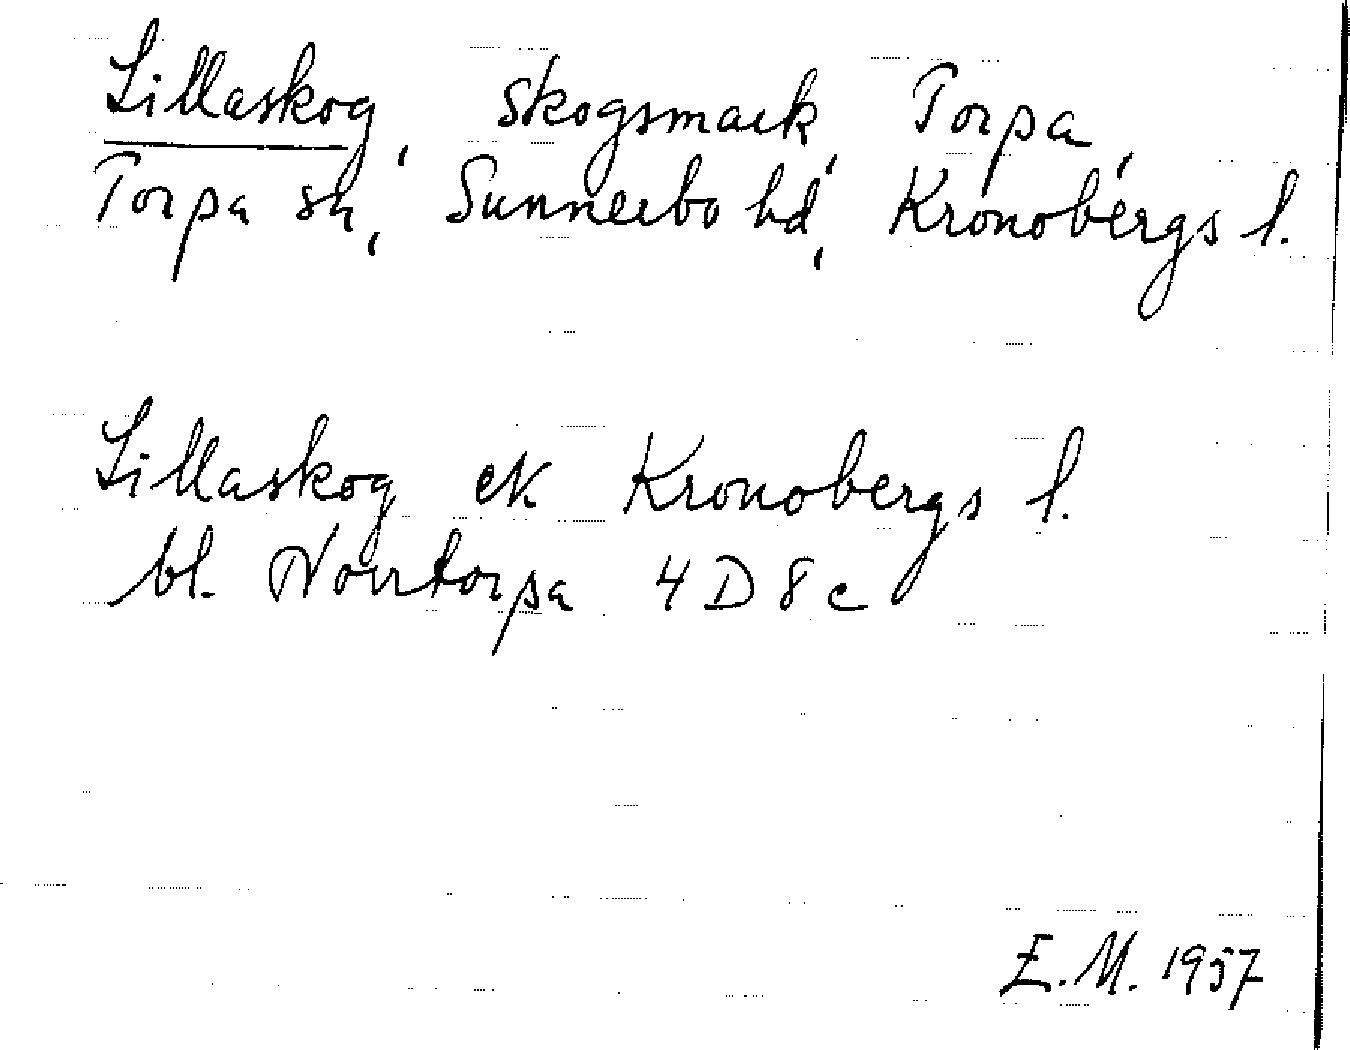 Lillaskog, skogsmark, Torpa,
Torpa sn, Sunnerbo hd, Kronobergs l.
Lillaskog ek Kronobergs l.
bl. Norrtorpa 4D8c
E.M. 1957